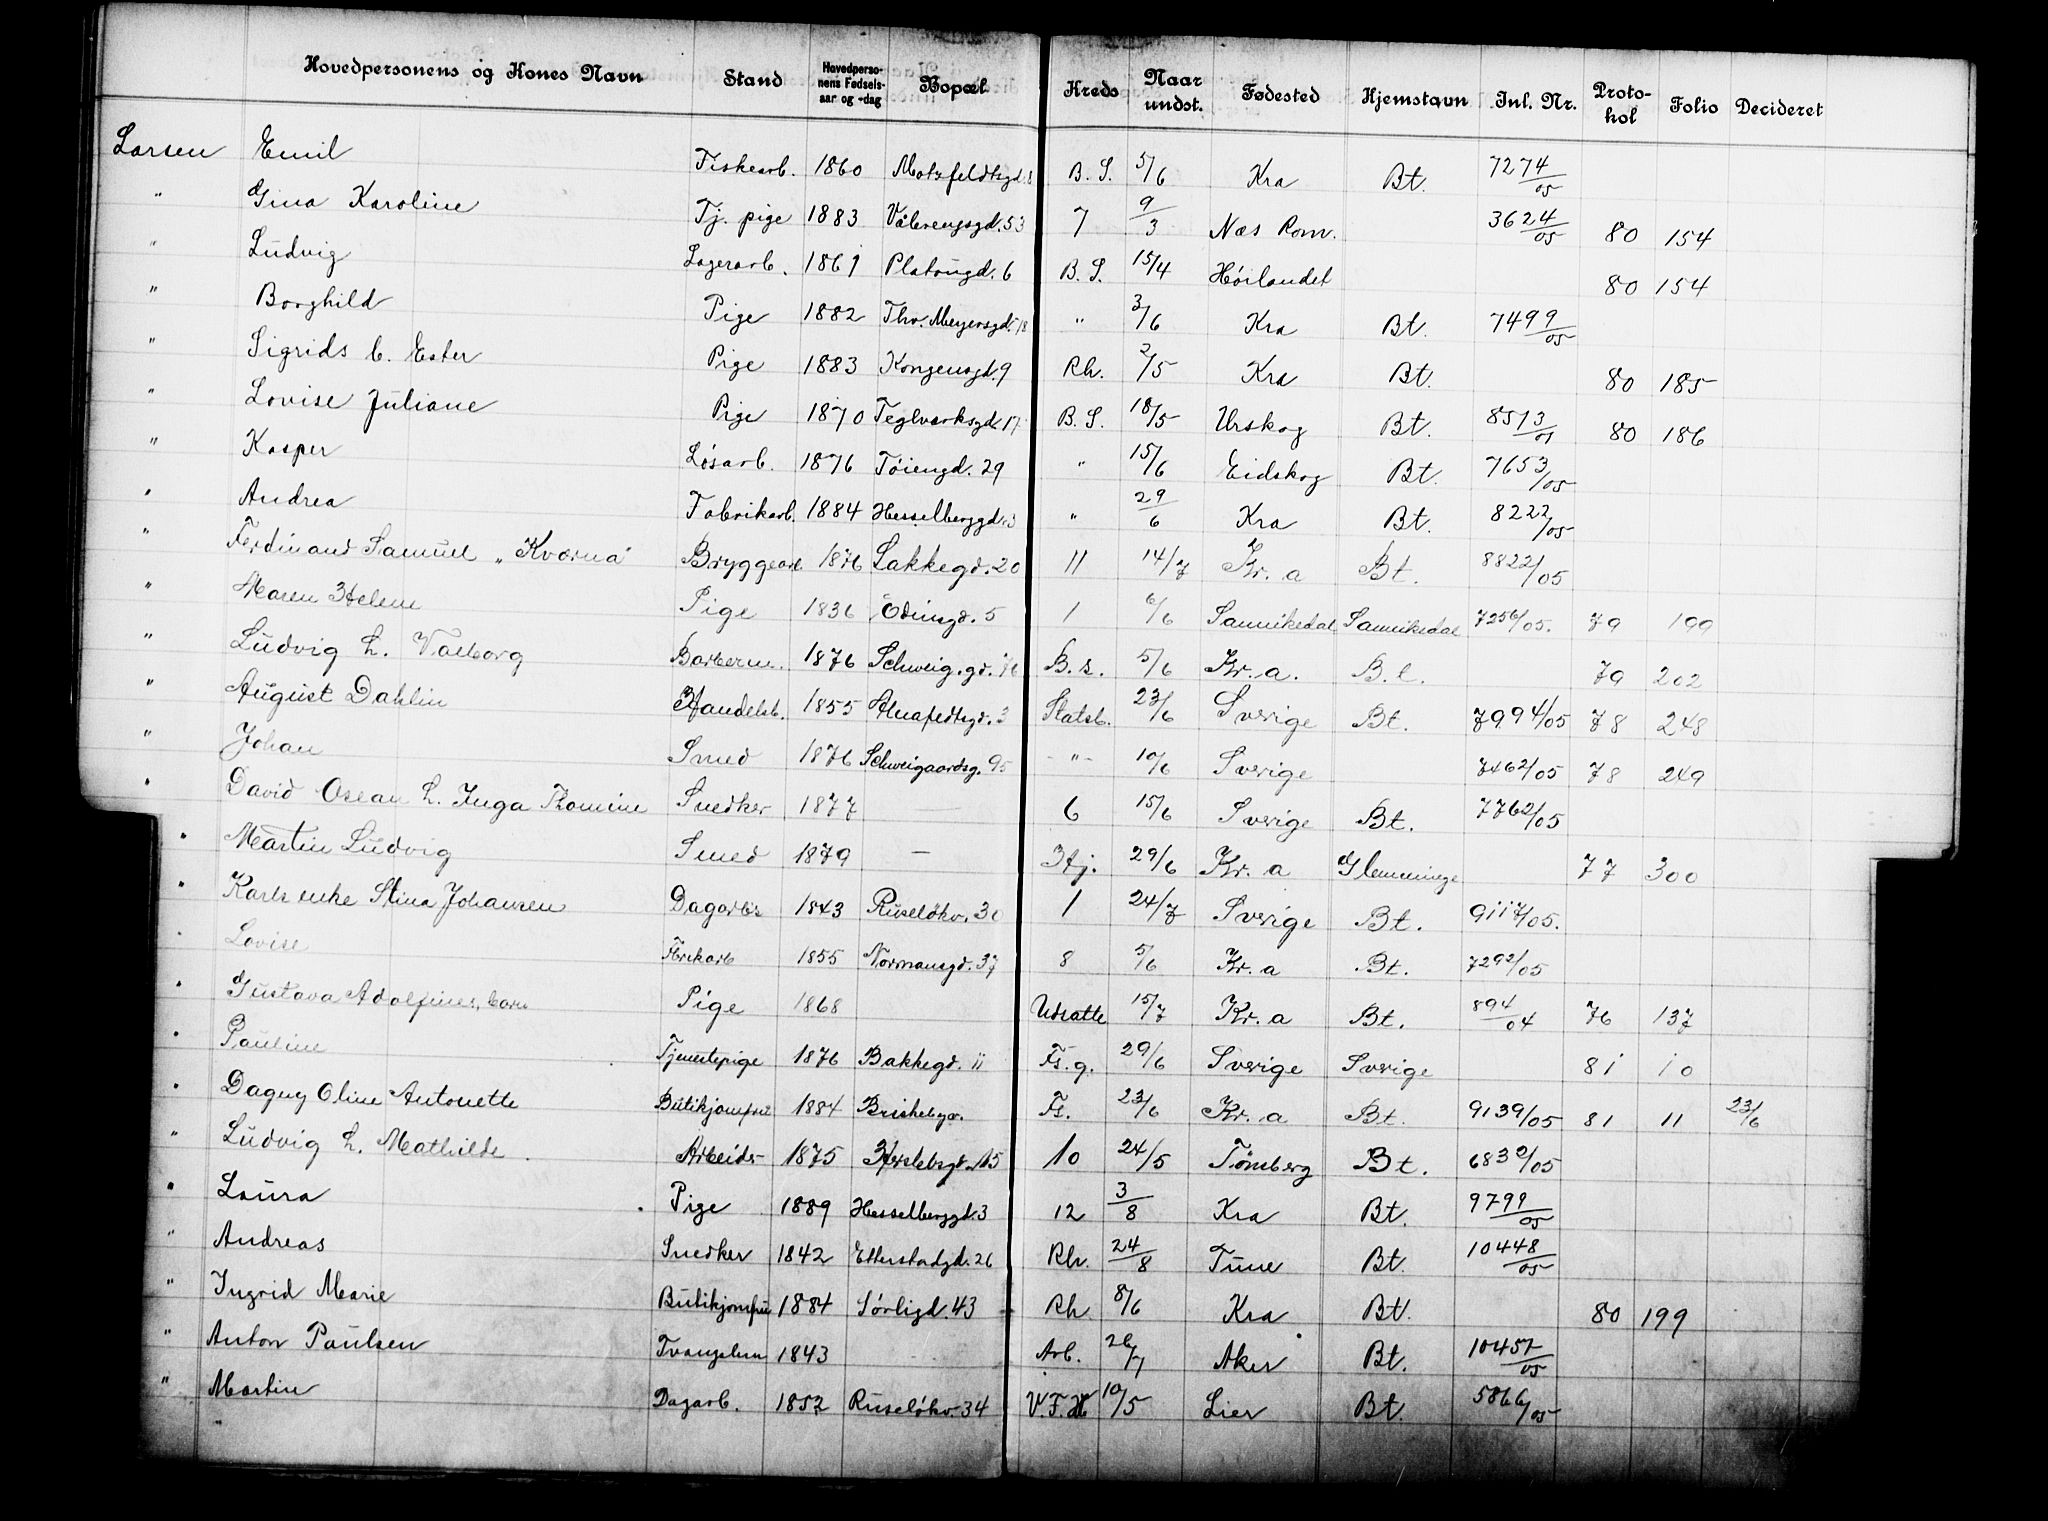 Hovedpersonens og Kones Navn Stand Hovedpersonens Fødselsaar og -dag Bopæl Kreds Naar undst. Fødested Hjemstavn Inl. Nr. Protokol Folio Decideret
Larsen Emil Fiskearb. 1860 Motzfeldtsgd. 8 B. S. 5/6 Kra Bt. 7274/05
" Gina Karoline Tj. pige 1883 Vålerengsgd. 53 7 9/3 Næs Rom. 3624/05 80 154
" Ludvig Lagerarb. 1861 Platousgd. 6 B. S. 15/4 Høilandet 80 154
" Borghild Pige 1882 Thv. Meyersgd. 18 " 3/6 Kra Bt. 7499/05
" Sigrids b. Ester Pige 1883 Kongensgd. 9 Rh. 2/5 Kra Bt. 80 185
" Lovise Juliane Pige 1870 Teglverksgd. 17 B. S. 18/5 Urskog Bt. 8513/01 80 186
" Kasper Løsarb. 1876 Tøiengd. 29 " 15/6 Eidskog Bt. 7653/05
" Andrea Fabrikarb. 1884 Hesselberggd. 3 " 29/6 Kra Bt. 8222/05
" Ferdinand Samuel „Kværna" Bryggearb 1876 Lakkegd. 20 11 14/7 Kr. a Bt. 8822/05
" Maren Helene Pige 1836 Odinsgd. 5 1 6/6 Sannikedal Sannikedal 7256/05. 79 199
" Ludvig h. Valborg Barberm. 1876 Schweig. gd. 76 B. s. 5/6 Kr. a. B. t. 79 202
" August Dahlin Handelsb. 1855 Alnafedtsgd. 3 Statsb. 23/6 Sverige Bt. 7994/05 78 248
" Johan Smed 1876 Schweigaardsg. 95 -"- 10/6 Sverige 7462/05 78 249
" David Osean h. Inga Thomine Snedker 1877 — 6 15/6 Sverige Bt. 7762/05
" Martin Ludvig Smed 1879 — Hj. 29/6 Kr. a Glemminge 77 300
" Karls enke Stina Johansen Dagarb. 1843 Ruseløkv. 30 1 24/7 Sverige Bt. 9117/05.
" Lovise 1855 Normansgd. 37 8 5/6 Kr. a Bt. 7292/05
" Gustava Adolfines, barn Pige 1868 Udsatte 15/7 Kr. a Bt. 894/04 76 137
" Pauline Tjenestepige 1876 Bakkegd. 11 Fs. g. 29/6 Sverige Sverige 81 10
" Dagny Oline Antonette Butikjomfru 1884 Briskebyv. Fs. 23/6 Kr. a Bt. 9139/05 81 11 23/6
" Ludvig h. Mathilde Arbeider 1875 Herslebsgd. 15 10 24/5 Tønsberg Bt. 6830/05
" Laura Pige 1889 Hesselberggd. 3 12 3/8 Kra Bt. 9799/05
" Andreas Snedker 1842 Etterstadgd. 26 Rh. 24/8 Tune Bt. 10448/05
" Ingrid Marie Butikjomfru 1884 Sørligd. 43 Rh. 8/6 Kra Bt. 80 199
" Anton Paulsen Tvangslem 1843 Arb. 26/7 Aker Bt. 10457/05
" Martin Dagarb. 1852 Ruseløkv. 34 V. F. H 10/5 Lier Bt. 5866/05
"